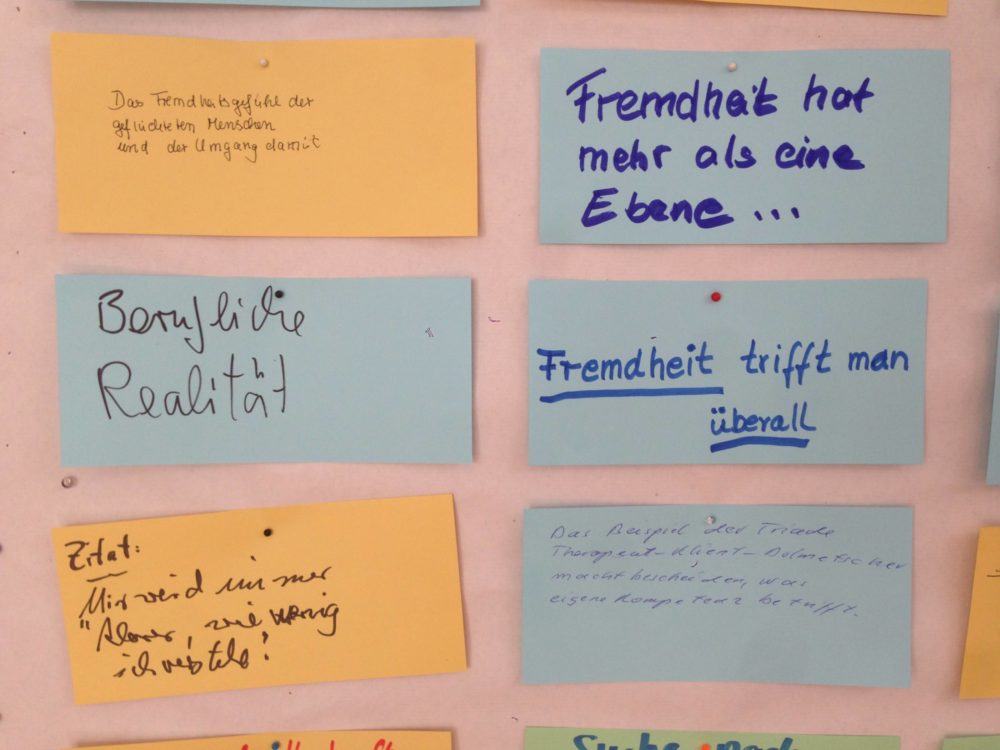 Das Fremdheitsgefühl der
geflüchteten Menschen
und der Umgang damit
Fremdheit hat
mehr als eine
Ebene ...
Berufliche
Realität
Fremdheit trifft man
überall
Zitat:
Mir wird immer
"klarer, wie wenig
ich verstehe!
Das Beispiel der Triade
Therapeut-Klient-Dolmetscher
macht bescheiden, was
eigene Kompetenz betrifft.